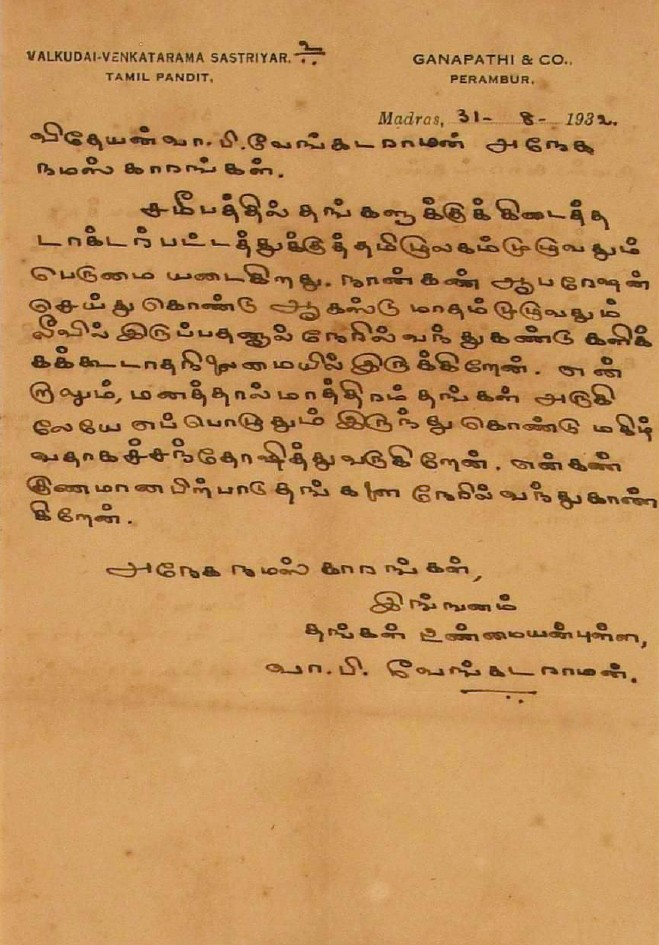 VALKUDAI-VENKATARAMA SASTRIYAR, உ
GANAPATHI & CO.,
TAMIL PANDIT,
PERAMBUR,
Madras, 31- 8- 1932.
விதேயன் வா. பி. வேங்கடராமன் அநேக
நமஸ்காரங்கள்.
சமீபத்தில் தங்களுக்குக் கிடைத்த
டாக்டர் பட்டத்துக்குத் தமிழுலகம் முழுவதும்
பெருமை யடைகிறது. நான் கண் ஆபரேஷன்
செய்து கொண்டு ஆகஸ்டு மாதம் முழுவதும்
லீவில் இருப்பதனால் நேரில் வந்து கண்டு களிக்
கக்கூடாத நிலைமையில் இருக்கிறேன். என்
றாலும், மனத்தால் மாத்திரம் தங்கள் அருகி
லேயே எப்பொழுதும் இருந்து கொண்டு மகிழ்
வதாகச் சந்தோஷித்து வருகிறேன். என் கண்
குணமான பிற்பாடு தங்களை நேரில் வந்து காண்
கிறேன்.
அநேக நமஸ்காரங்கள்,
இங்ஙனம்
தங்கள் உண்மையன்புள்ள,
வா. பி. வேங்கடராமன்.